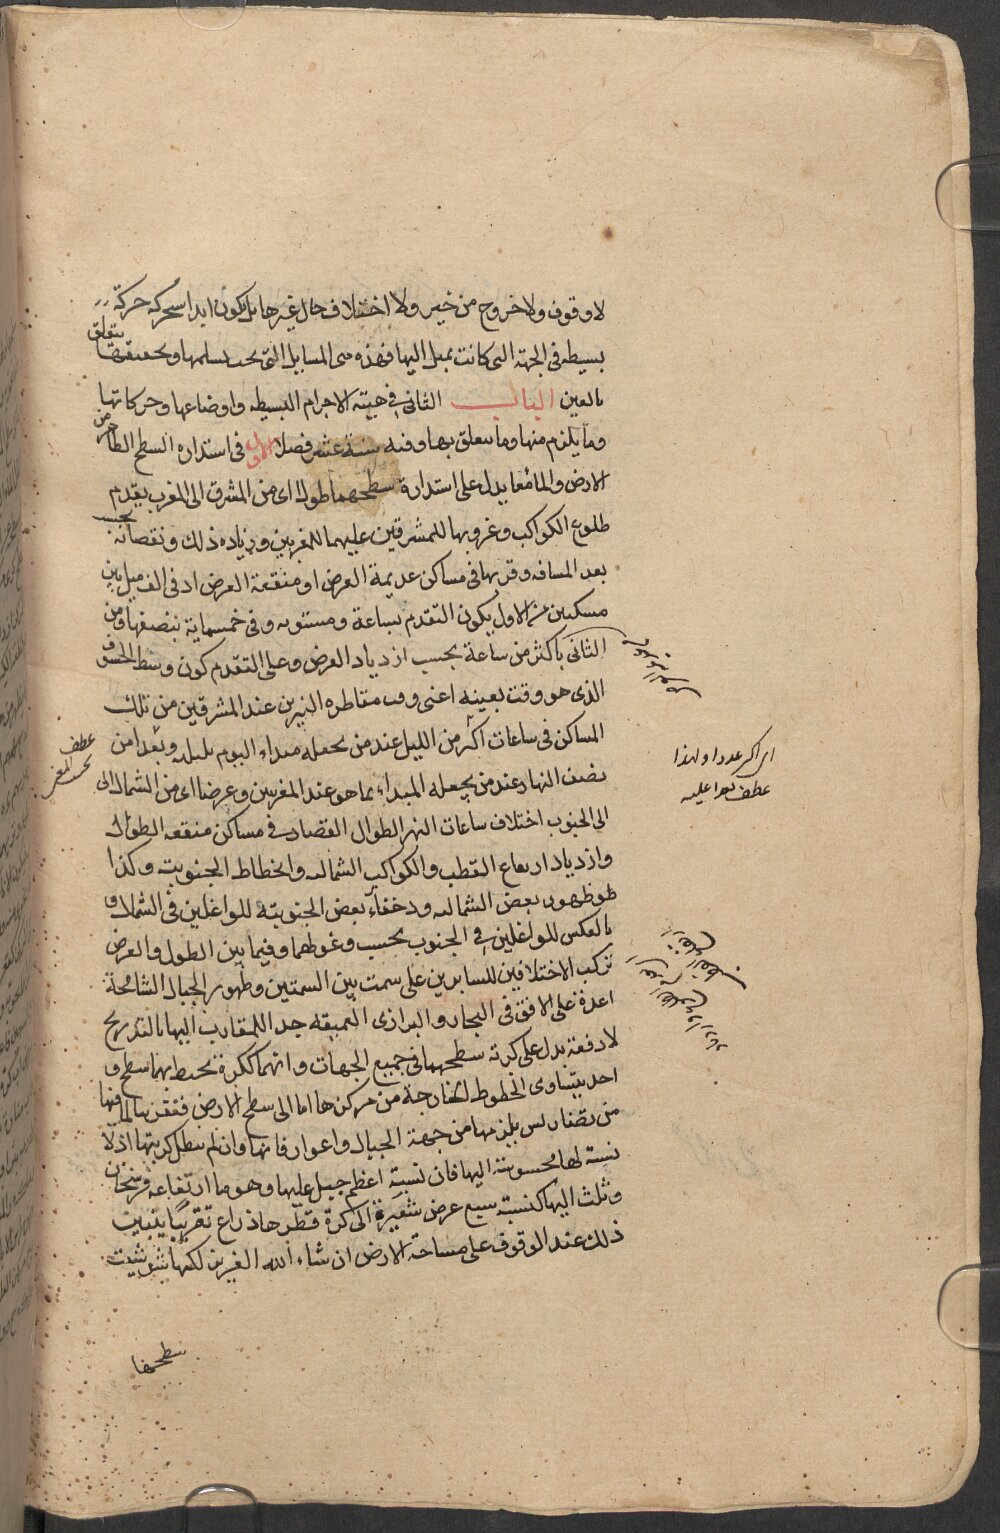 لا وقوف ولا خروج من خير ولا اختلاف حال غيرها بل يكون ابدا متحركه حركة
بسيطه فى الجهة التى كانت تميل اليها فهذه هى المسايل التى يجب تسلمها وتحقيقها يتعلق
بالعين الباب الثانى فى هيئة الاجرام البسيطه واوضاعها وحركاتها
وما يلزم منها وما يتعلق بها وفيه ستة عشر فصلا الاول فى استداره السطح الظاهر من
الارض والماء معا يدل على استدارة سطحهما طولا اى من المشرق الى المغرب تقدم
طلوع الكواكب وغروبها للمشرقين عليهما للمغربين وزياده ذلك ونقصانه بحسب
بعد المسافه وقربها فى مساكن عديمة العرض او متفقة العرض اذ فى الف ميل بين
مسكنين من الاول يكون التقدم بساعة مستويه وفى خمسماية بنصفها ومن
الثانى باكثر من ساعة بحسب ازدياد العرض وعلى التقدم كون وسط الخسوف
الذى هو وقت بعينه اعنى وقت مقاطره النيرين عند المشرقين من تلك
المساكن فى ساعات اكثر من الليل عند من يجعله مبداء اليوم بليلته وبعدا من
نصف النهار عند من يجعله المبداء مما هو عند المغربين وعرضا اى من الشمال الى
الى الجنوب اختلاف ساعات النهر الطوال القصار فى مساكن متفقه الطول
وازدياد ارتفاع القطب والكواكب الشماليه وانحطاط الجنوبية وكذا
ظهور بعض الشماليه وخفاء بعض الجنوبية للواغلين فى الشمال و
بالعكس للواغلين فى الجنوب بحسب وغولهما وفيما بين الطول والعرض
تركب الاختلافين للسايرين على سمت بين السمتين وظهور الجبال الشامخة
على الافق فى البحار والبرارى العميقه جدا للمتقارب اليها بالتدريج
لا دفعة يدل على كرية سطحهما فى جميع الجهات وانهما ككرة يحيط بهما سطح و
احد يتساوى الخطوط الخارجة من مركزها اما الى سطح الارض فتقريبا لما فيها
من تضاريس يلزمها من جهة الجبال واغوار فانها وان لم تبطل كريتها اذ لا
نسبة لها محسوسة اليها فان نسبة اعظم جبل عليها وهو ما ارتفاعه فرسخان
وثلث اليها كنسبة سبع عرض شعيرة الى كرة قطرها ذراع تقريبا يتبين
ذلك عند الوقوف على مساحة الارض ان شاء الله العزيز لكنها شوشت
سطحها
عطف
اى اكثر عددا ولهذا
عطف بعدا عليه